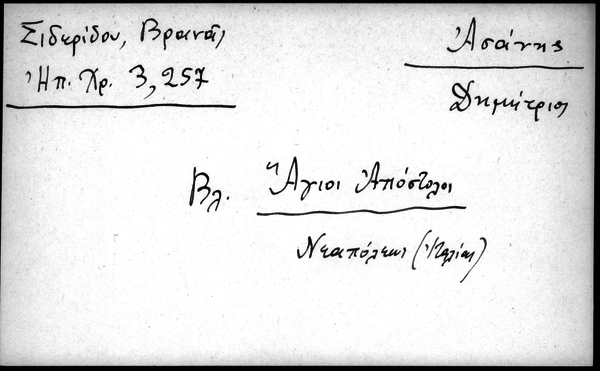 Σιδερίδου, Βρανᾶ,
Ἠπ. Χρ. 3, 257
Ἀσάνης
Δημήτριος
Βλ. Ἅγιοι Ἀπόστολοι
Νεαπόλεως (Ἰταλίας)